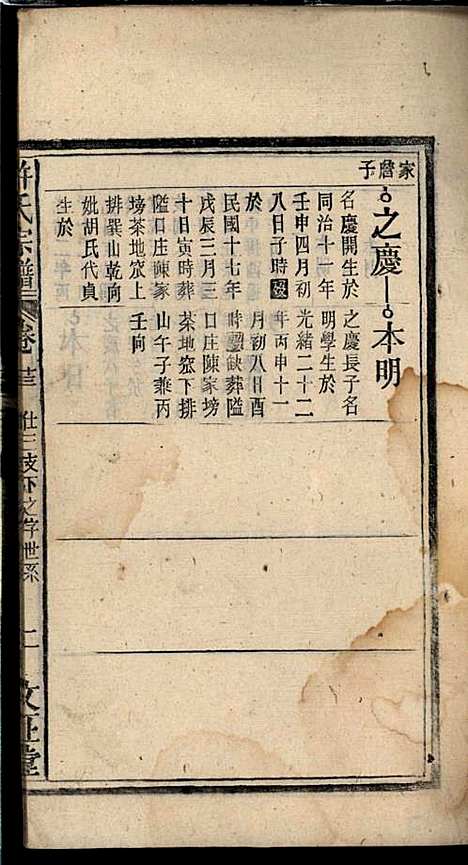 家詹子
之慶
本明
名慶開生於
同治十一年
壬申四月初
八日子時歿
於
民國十七年
戊辰三月三
十日寅時葬
隘口庄陳家
塝茶地窊上
排巽山乾向
妣胡氏代貞
生於
之慶長子名
明學生於
光緒二十二
年丙申十一
月初八日酉
時缺葬隘
口庄陳家塝
茶地窊下排
山午子兼丙
壬向
許氏宗譜
卷
仕三
之字世系
二
敘正堂